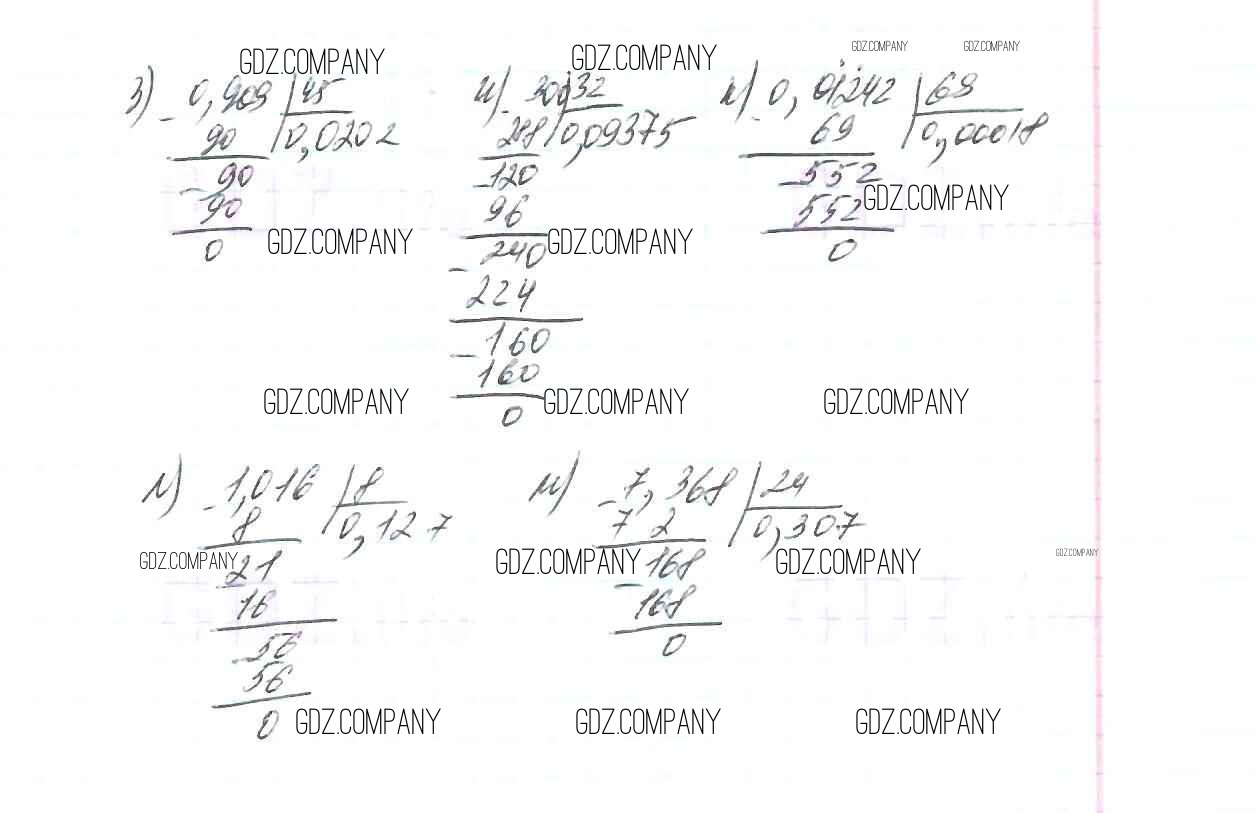 GDZ.COMPANY GDZ.COMPANY GDZ.COMPANY GDZ.COMPANY
з) 0,909 | 45 и) 300 | 32 к) 0,01242 | 69
90 0,0202 288 0,09375 69 0,00018
90 120 552
90 96 552 GDZ.COMPANY
0 GDZ.COMPANY 240 GDZ.COMPANY 0
224
160
160
GDZ.COMPANY 0 GDZ.COMPANY GDZ.COMPANY
л) 1,016 | 8 м) 7,368 | 24
8 0,127 7 2 0,307
GDZ.COMPANY 21 GDZ.COMPANY 168 GDZ.COMPANY GDZ.COMPANY
16 168
56 0
56
0 GDZ.COMPANY GDZ.COMPANY GDZ.COMPANY